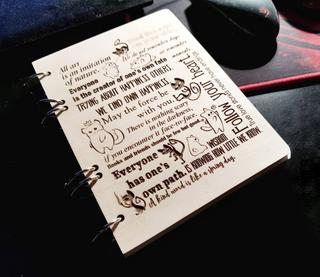 All art
is an imitation
of nature.
Everyone
is the creator of one's own fate
TRYING ABOUT HAPPINESS OTHERS,
WE FIND OWN HAPPINESS
May the force be
with you
There is nothing scary
in the darkness,
if you encounter it face-to-face.
Books and friends should be few but good
Everyone
has one's
own path.
WISDOM
IS KNOWING HOW LITTLE WE KNOW
A kind word is like a spring day.
Follow your heart